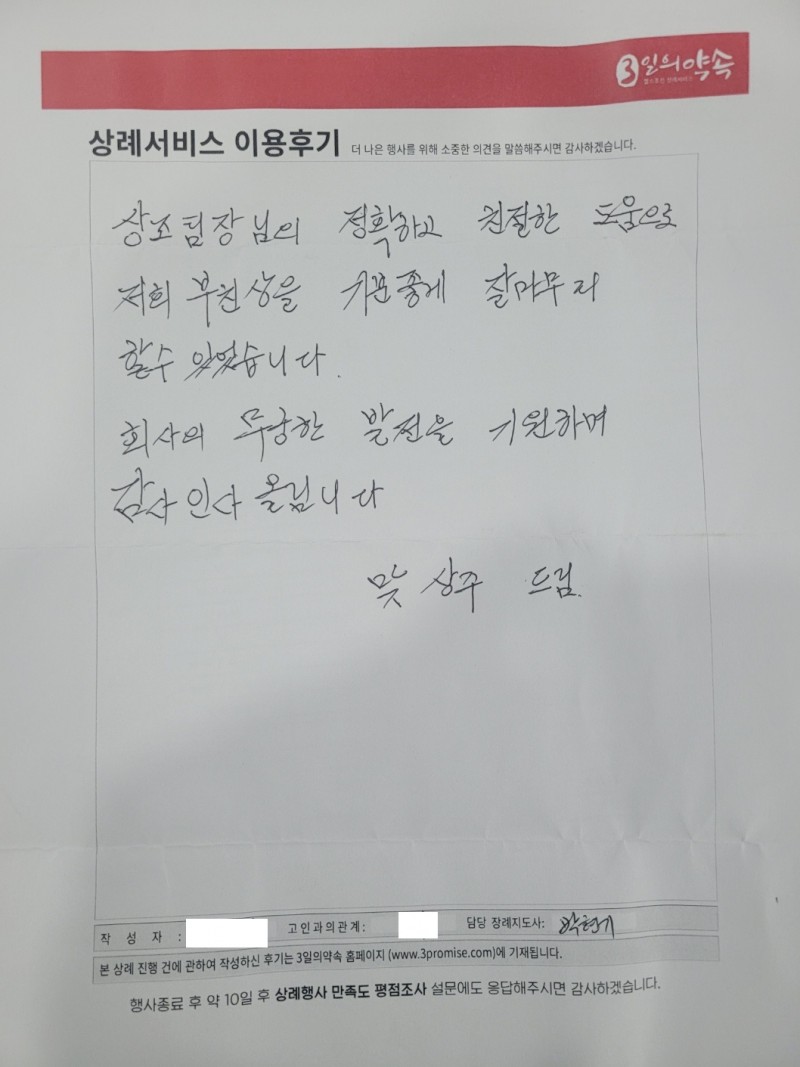 3일의약속
상례서비스 이용후기 더 나은 행사를 위해 소중한 의견을 말씀해주시면 감사하겠습니다.
상조팀장님의 정확하고 친절한 도움으로
저희 부친상을 기분좋게 잘마무리
할수 있었습니다.
회사의 무궁한 발전을 기원하며
감사인사 올립니다
맞상주 드림.
작 성 자 : 고인과의관계: 담당 장례지도사:
본 상례 진행 건에 관하여 작성하신 후기는 3일의약속 홈페이지 (www.3promise.com)에 기재됩니다.
행사종료 후 약 10일 후 상례행사 만족도 평점조사 설문에도 응답해주시면 감사하겠습니다.